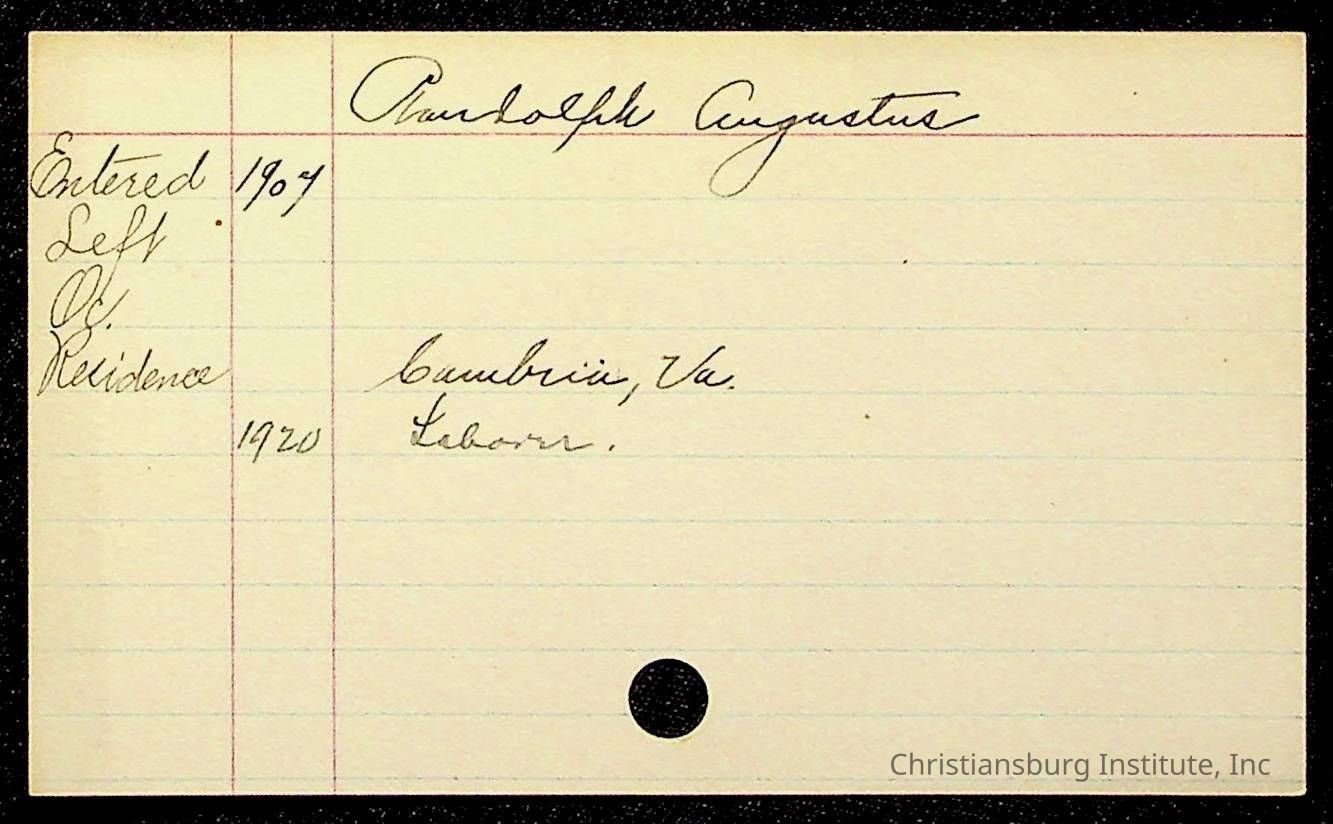 Randolph Augustus
Entered 1907
Left
Oc.
Residence Cambria, Va.
1920 Laborer.
Christiansburg Institute, Inc